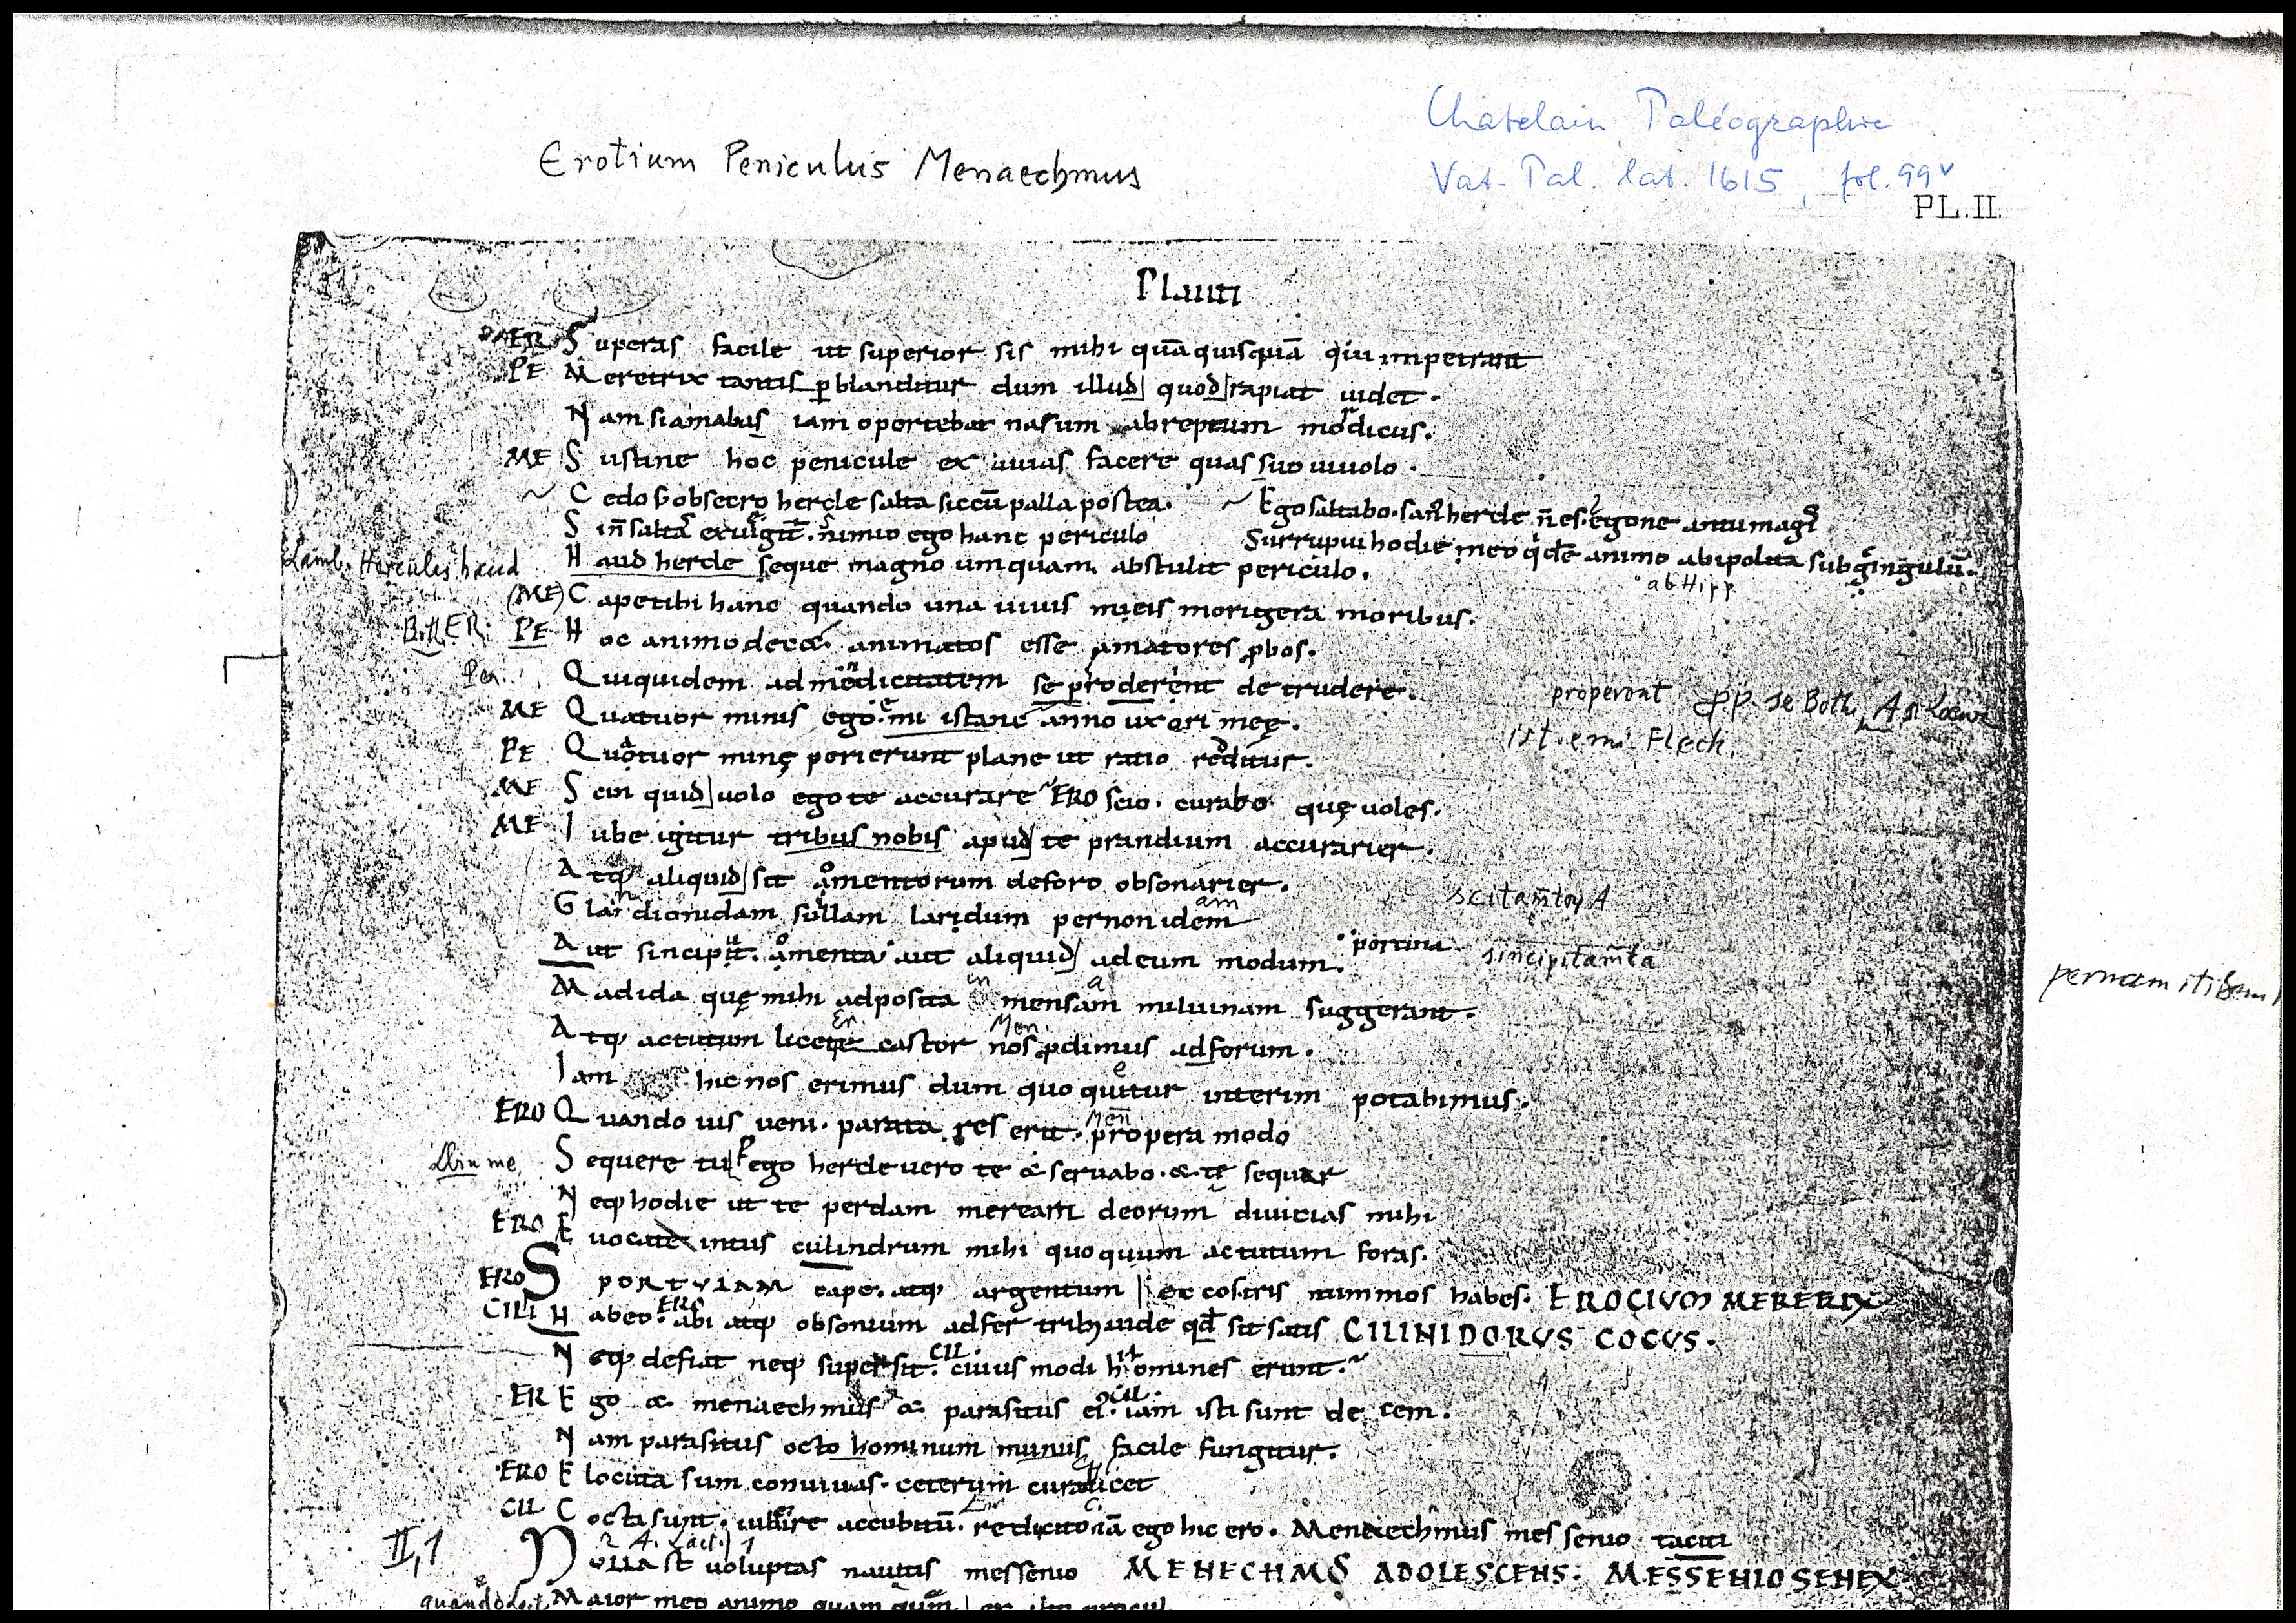 Chatelain, Paléographie
Erotium Peniculus Menaechmus
Vat. Pal. lat. 1615, fol. 99v
PL. II.
Plauti
ER Superas facile ut superior sis mihi quā quisquā qui impetrant
PE Meretrix tantisp blanditur dum illud quod rapiat uidet.
Nam si amabas iam oportebat nasum abreptum mordicus.
ME Sustine hoc penicule exuuias facere quas uolo.
Cedo obsecro hercle salta sic cū palla postea. Ego saltabo. san hercle n es. egone an tu magis
Si n saltas exue igit. nimio ego hanc periculo Surrupui hodie meo qdē animo ab ipolita subcingulū.
Lamb. Hercules haud Haud hercle seque magno umquam abstulit periculo.
ab Hipp
(ME) Cape tibi hanc quando una uiuis meis morigera moribus.
PE Hoc animo decet animatos esse amatores pbos.
Quiquidem ad mendicitatem se properent detrudere.
properant
ME Quatuor minis ego emi istanc anno uxori meę.
ist. emi Fleck.
PE Quatuor minę perierunt plane ut ratio redditur.
ME Scin quid uolo ego te accurare ERO scio. curabo quę uoles.
ME Iube igitur tribus nobis apud te prandium accurarier.
Atq aliquid scitamentorum de foro obsonarier.
Glandionidam suillam laridum pernonidem
am
Aut sincipit. amenta aut aliquid ad eum modum. porcina
sincipitamta
Madida quę mihi adposita in mensam miluinam suggerant.
pernam itidem
Atq actutum licet e castor nos pdimus ad forum.
Iam hic nos erimus dum quo quitur interim potabimus.
ERO Quando uis ueni. parata res erit. propera modo
Sequere tu P ego hercle uero te & seruabo. & te sequar
Neq hodie ut te perdam meream deorum diuicias mihi
ERO Euocate intus culindrum mihi quoquum actutum foras.
ERO SPORTVLAM cape. atq argentum ecco stris nummos habes. EROCIVM MERERIX
CILI Habeo. ERO abi atq obsonium adfer trib; uide qd sit satis CILINIDORVS COCVS.
Neq defiat neq supersit. CIL cuius modi homines erunt.
ER Ego & menaechmus & parasitus ei. CIL iam isti sunt decem.
Nam parasitus octo hominum munus facile fungitur.
ERO Elocuta sum conuiuas. ceterum cura licet
CIL Cocta sunt. iube ire accubitū. redi cito iā ego hic ero. Menaechmus messenio taciti
II,1 NVLLA st uoluptas nautis messenio MENECHMS ADOLESCENS. MESSENIO SENEX
Maior meo animo quam